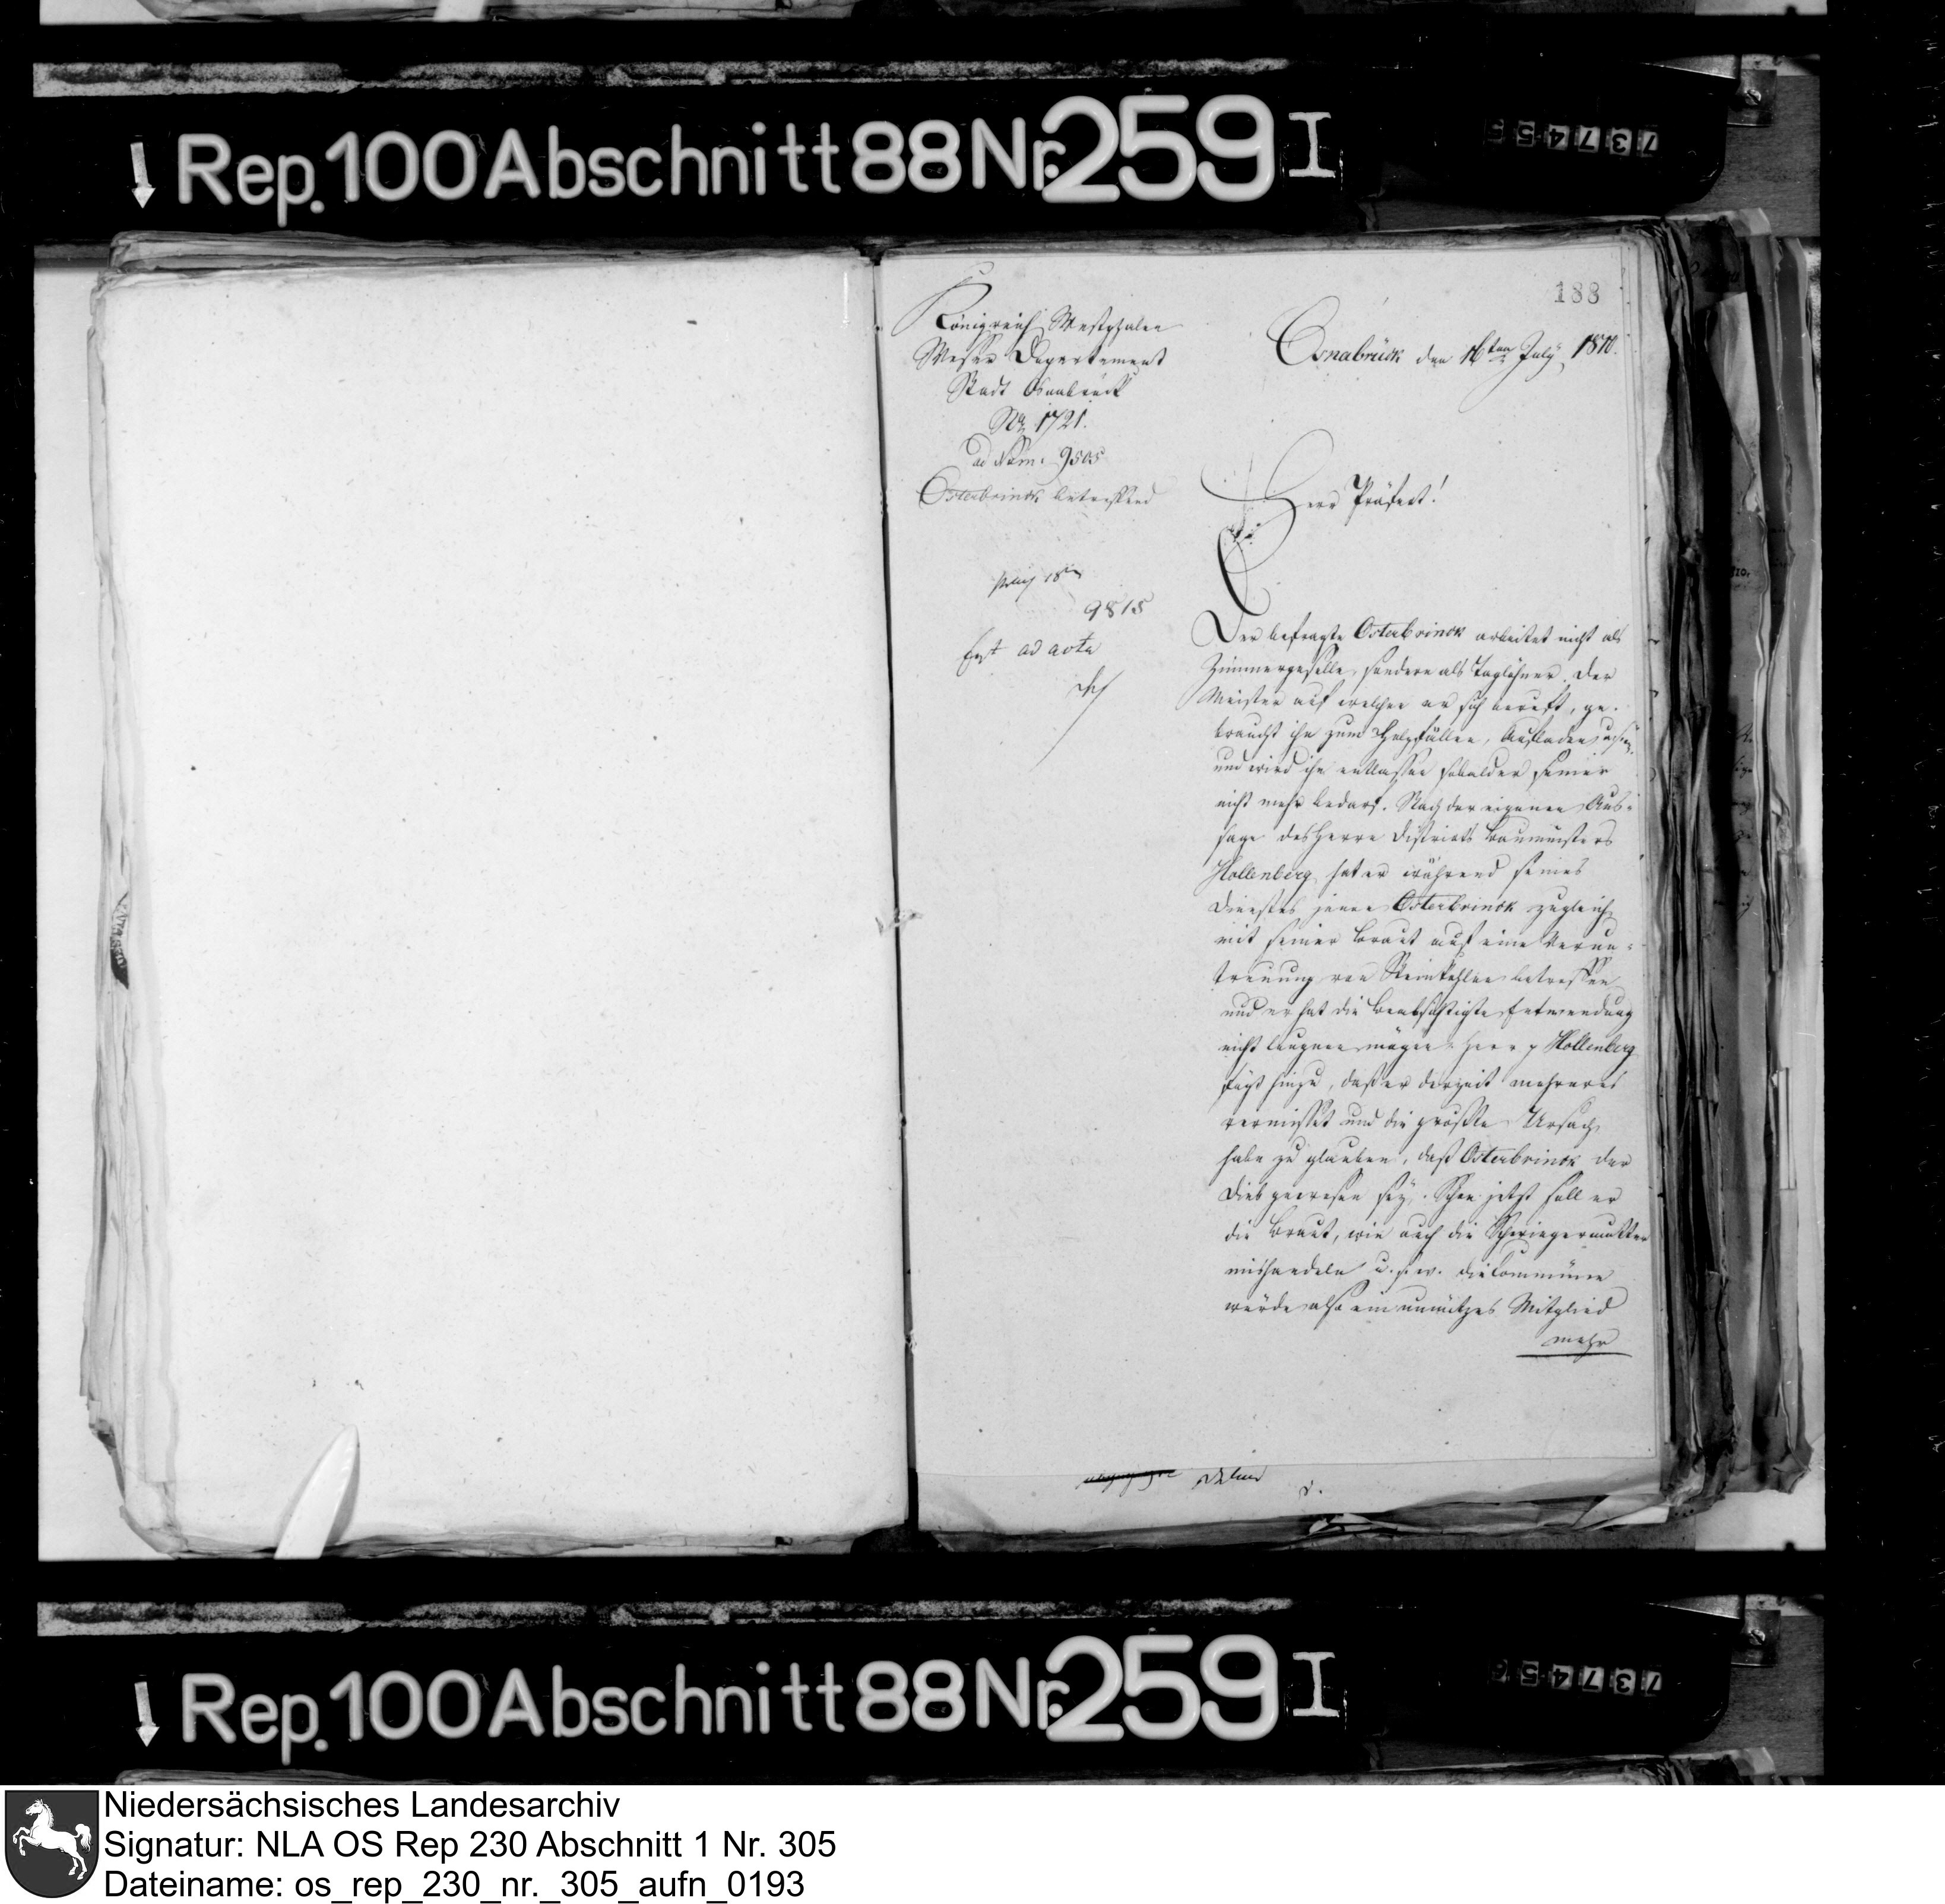 Rep. 100 Abschnitt 88 Nr. 259 I
188
Königreich Westphalen
Weser Departement
Stadt Osnabrück
No. 1721.
ad Num. 9505
Osterbrinck betreffend
Osnabrück den 16ten July 1810.
Herr Präfect!
9815
ad acta
Der befragte Osterbrinck arbeitet nicht als
Zimmergeselle, sondern als Taglöhner. Der
Meister auf welchen er sich beruft, ge-
braucht ihn zum Holzfällen, Aufladen
und wird ihn entlassen sobald er seiner
nicht mehr bedarf. Nach der eigenen Aus-
sage des Herrn Districts Baumeisters
Hollenberg hat er während seines
Dienstes jenen Osterbrinck zugleich
mit seiner Braut auf eine Verun-
treuung von Steinkohlen betroffen
und er hat die beabsichtigte Entwendung
nicht leugnen mögen. Herr p Hollenberg
fügt hinzu, daß er derzeit mehreres
vermisset und die größte Ursach
habe zu glauben, daß Osterbrinck der
Dieb gewesen sey. Schon jetzt soll er
die Braut, wie auch die Schwiegermutter
mishandeln u. s. w. die Commüne
würde also ein unnützes Mitglied
mehr
Rep. 100 Abschnitt 88 Nr. 259 I
Niedersächsisches Landesarchiv
Signatur: NLA OS Rep 230 Abschnitt 1 Nr. 305
Dateiname: os_rep_230_nr._305_aufn_0193